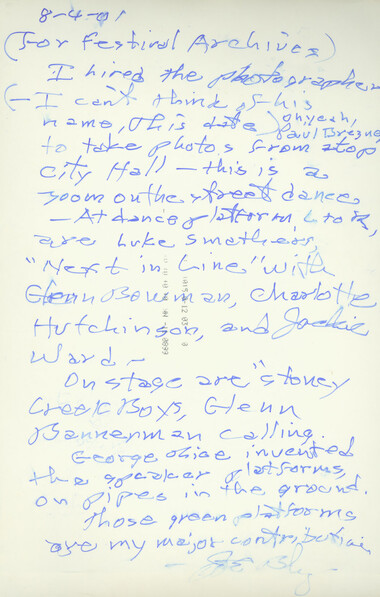 8-4-01
(For Festival Archives)
I hired the photographer
(— I can't think of his
name, this date oh, yeah,
Paul Brezny
to take photos from atop
City Hall — this is a
zoom on the street dance
— At dance platform L to R,
are Luke Smathers,
"Next in Line" with
Glenn Bowman, Charlotte
Hutchinson, and Jackie
Ward —
On stage are "Stoney
Creek Boys, Glenn
Bannerman calling.
George Obice invented
the speaker platforms,
on pipes in the ground.
Those green platforms
are my major contribution